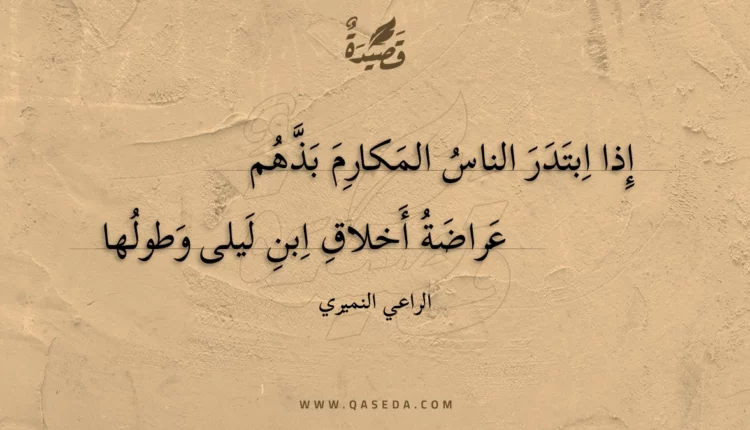 قَصِيْدَةٌ
إِذا اِبتَدَرَ الناسُ المَكارِمَ بَذَّهُم
عَراضَةُ أَخلاقِ اِبنِ لَيلى وَطولُها
الراعي النميري
WWW.QASEDA.COM